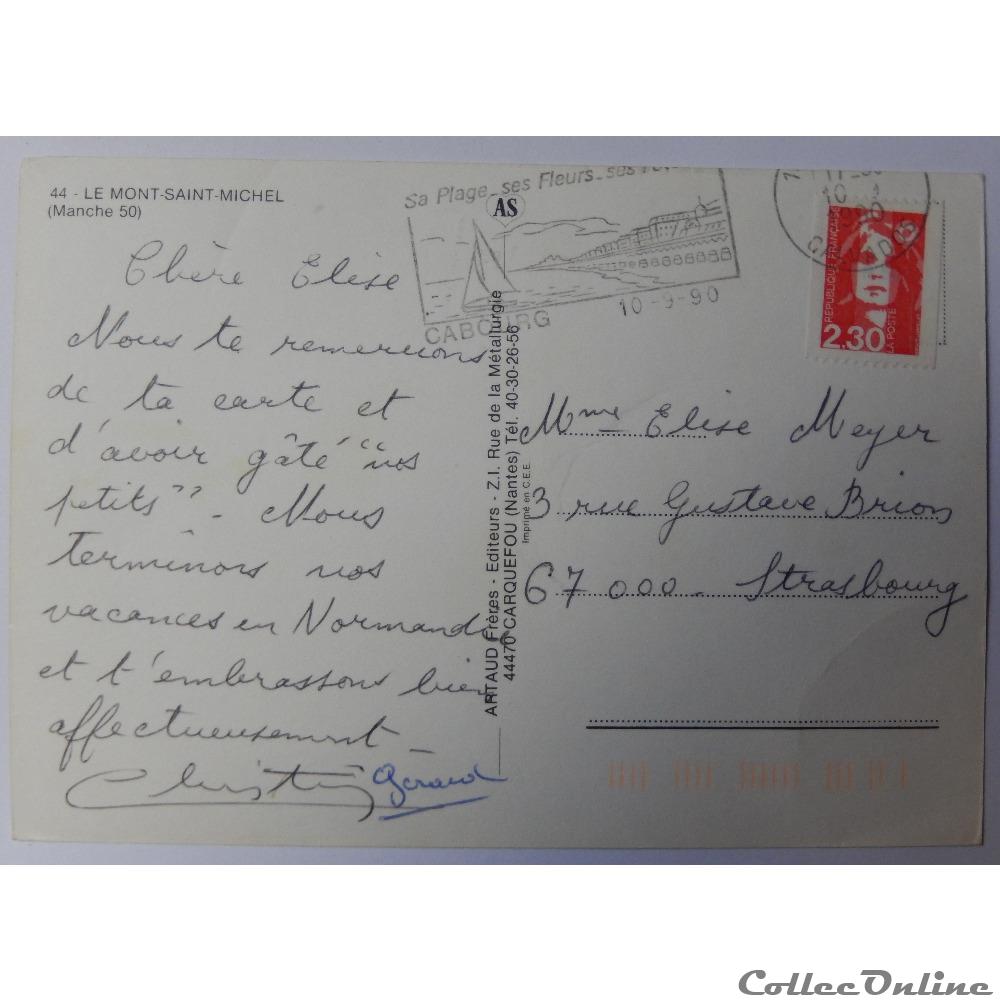 44 - LE MONT-SAINT-MICHEL
(Manche 50)
Sa Plage_ses Fleurs_ses
AS
CABOURG
10-9-90
10
1990
RÉPUBLIQUE FRANÇAISE
2,30
LA POSTE
Chère Elise
Nous te remercions
de ta carte et
d'avoir gâté "nos
petits" - Nous
terminons nos
vacances en Normandie
et t'embrassons bien
affectueusement -
Christine Gérard
ARTAUD Frères - Editeurs - Z.I. Rue de la Métallurgie
44470 CARQUEFOU (Nantes) Tél. 40-30-26-56
Imprimé en C.E.E.
Mme Elise Meyer
3 rue Gustave Brion
67000 - Strasbourg
CollecOnline